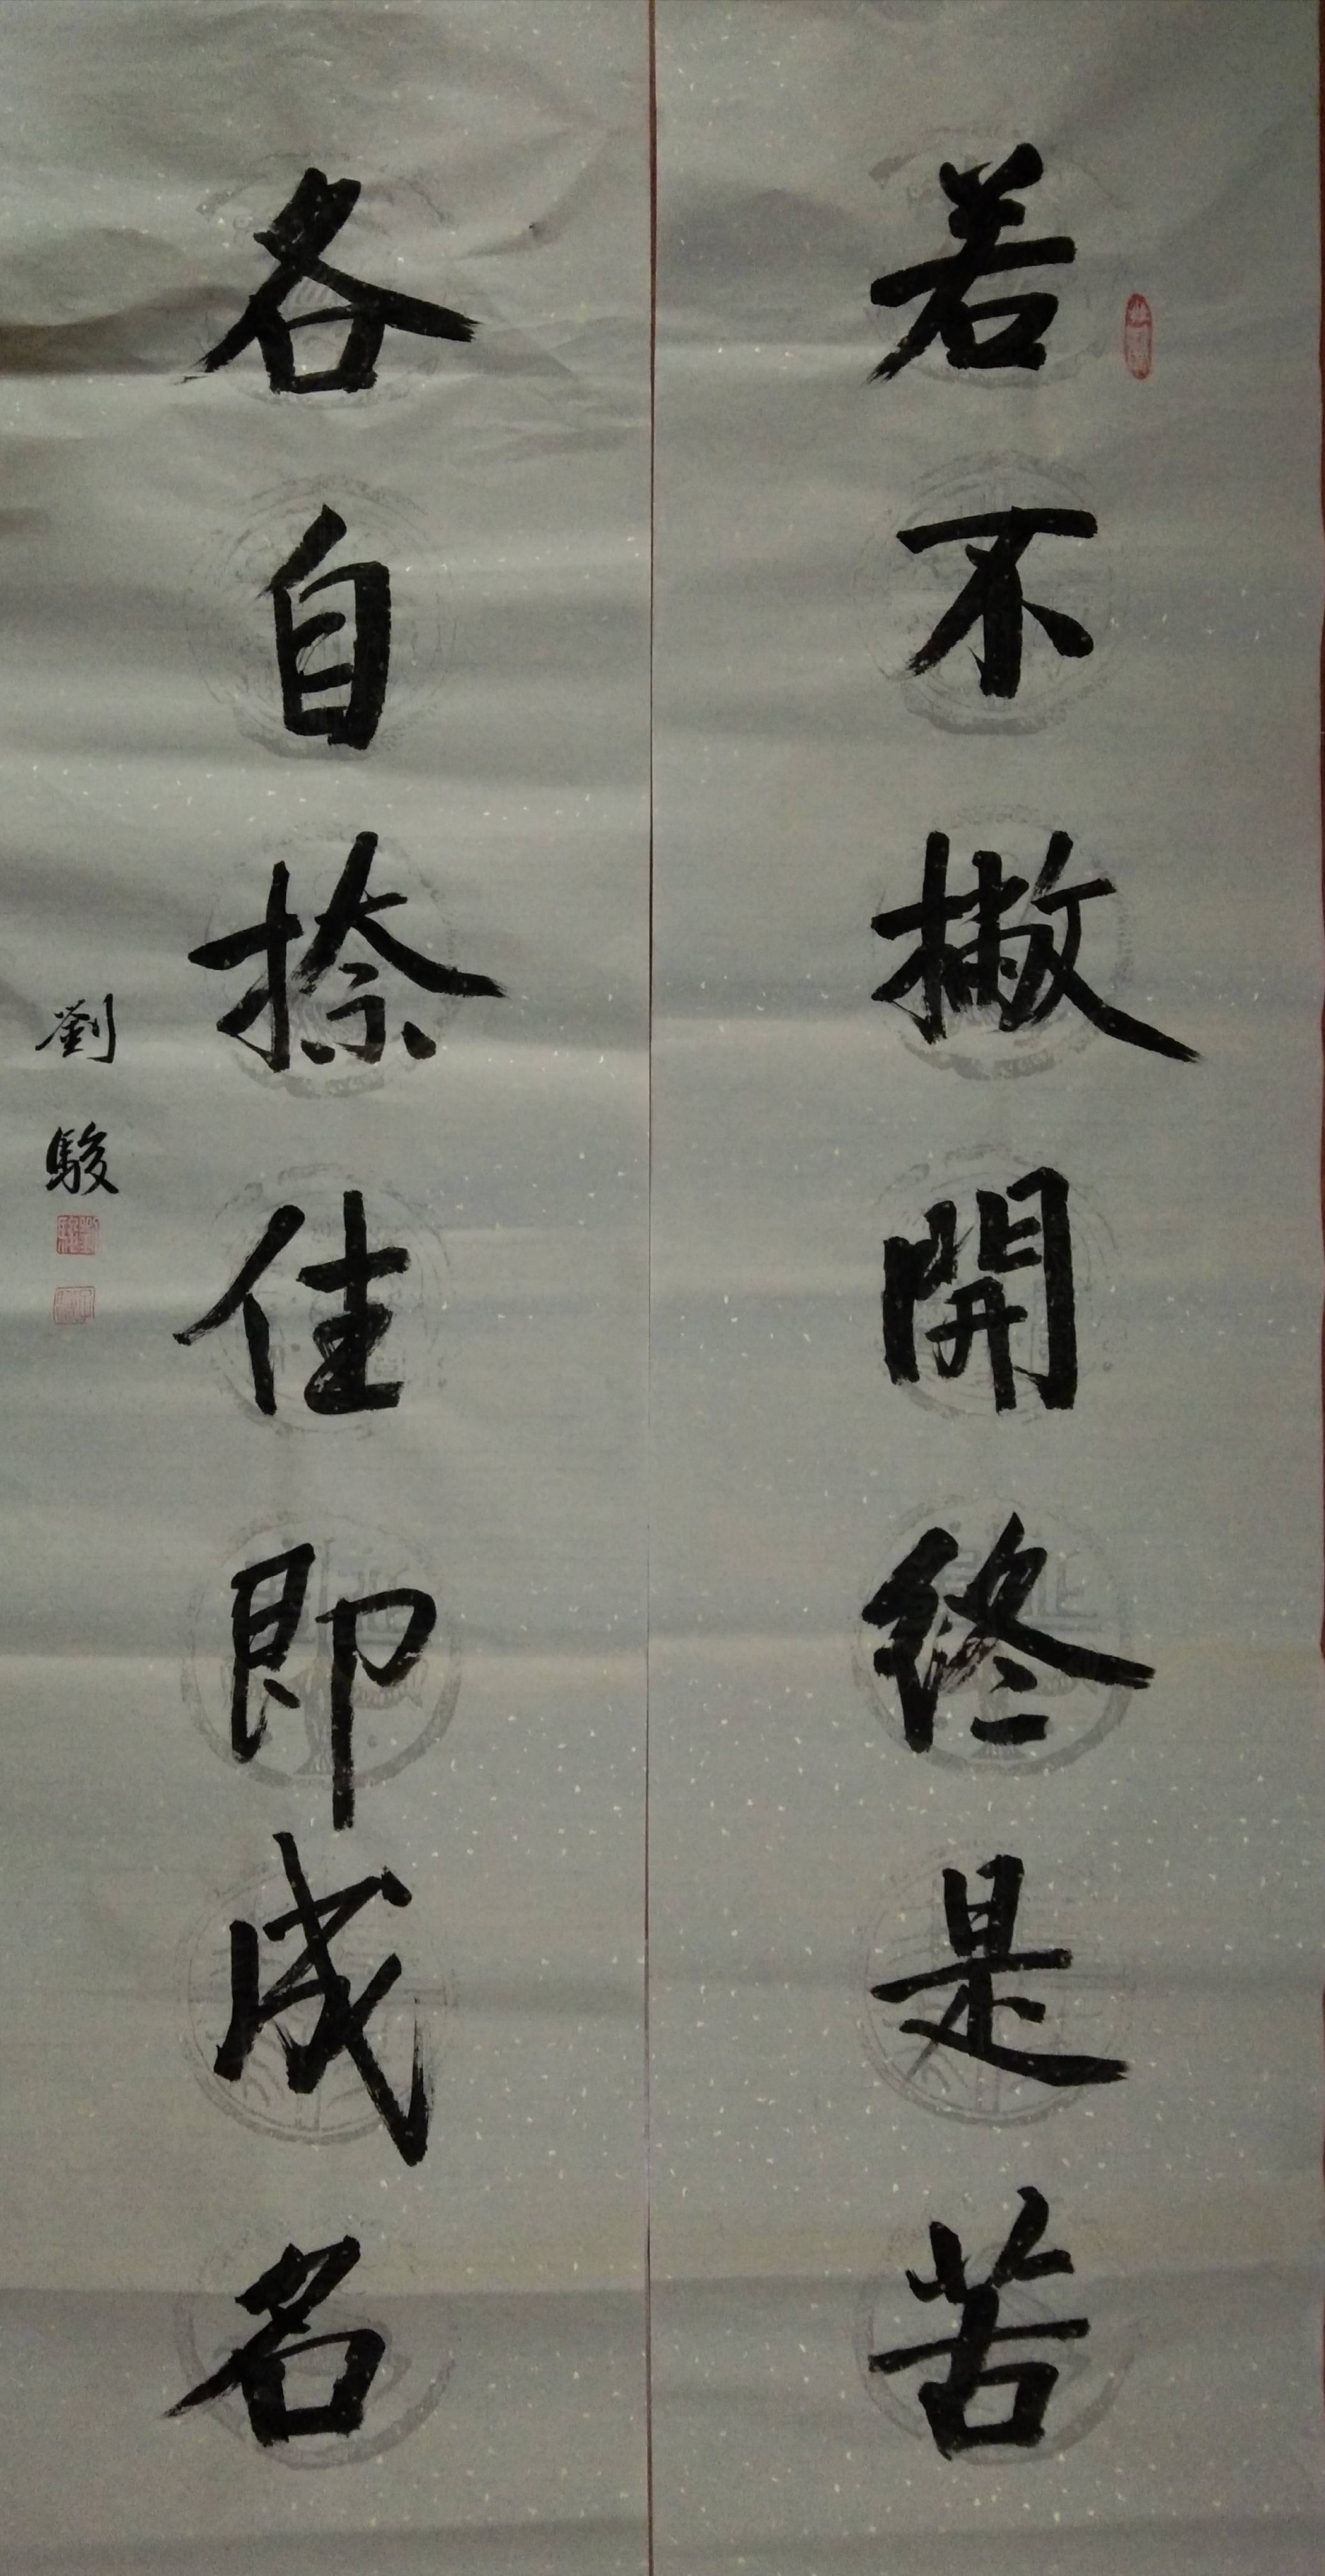 若不撇開終是苦
各自捺住即成名
劉駿